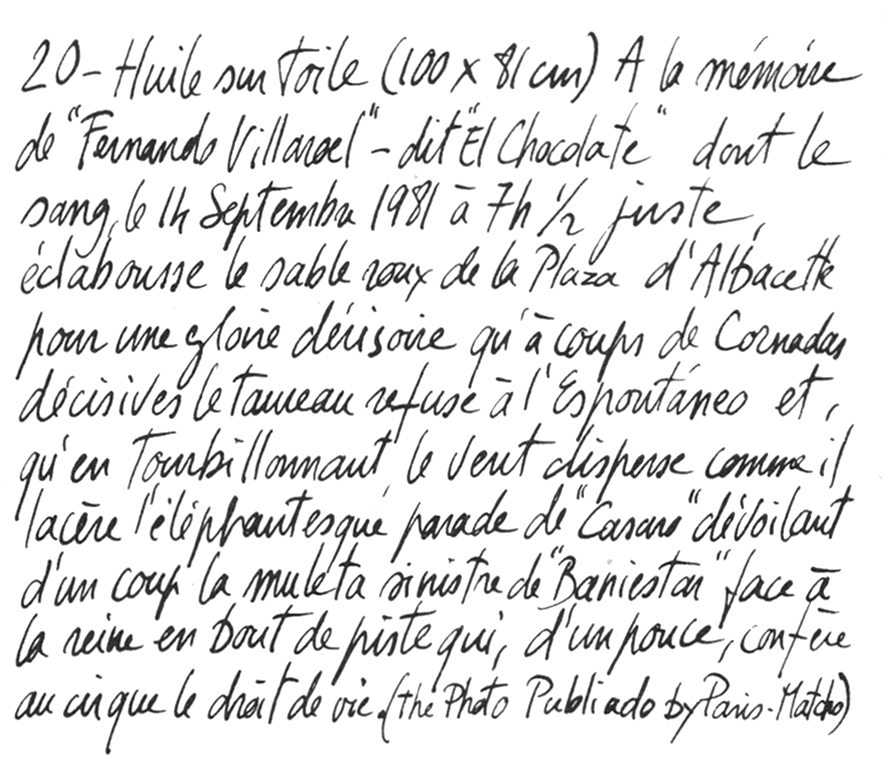 20 - Huile sur Toile (100 x 81 cm) A la mémoire
de "Fernando Villaroel" - dit "El Chocolate" dont le
sang, le 14 Septembre 1981 à 7h 1/2 juste,
éclabousse le sable roux de la Plaza d'Albacette
pour une gloire dérisoire qu'à coups de Cornadas
décisives le taureau refuse à l'Espontáneo et,
qu'en Tourbillonnant le vent disperse comme il
lacère l'éléphantesque parade de "Casaro" dévoilant
d'un coup la muleta sinistre de "Baniestar" face à
la reine en bout de piste qui, d'un pouce, confère
au cirque le droit de vie. (the Photo Publiado by Paris-Matcho)